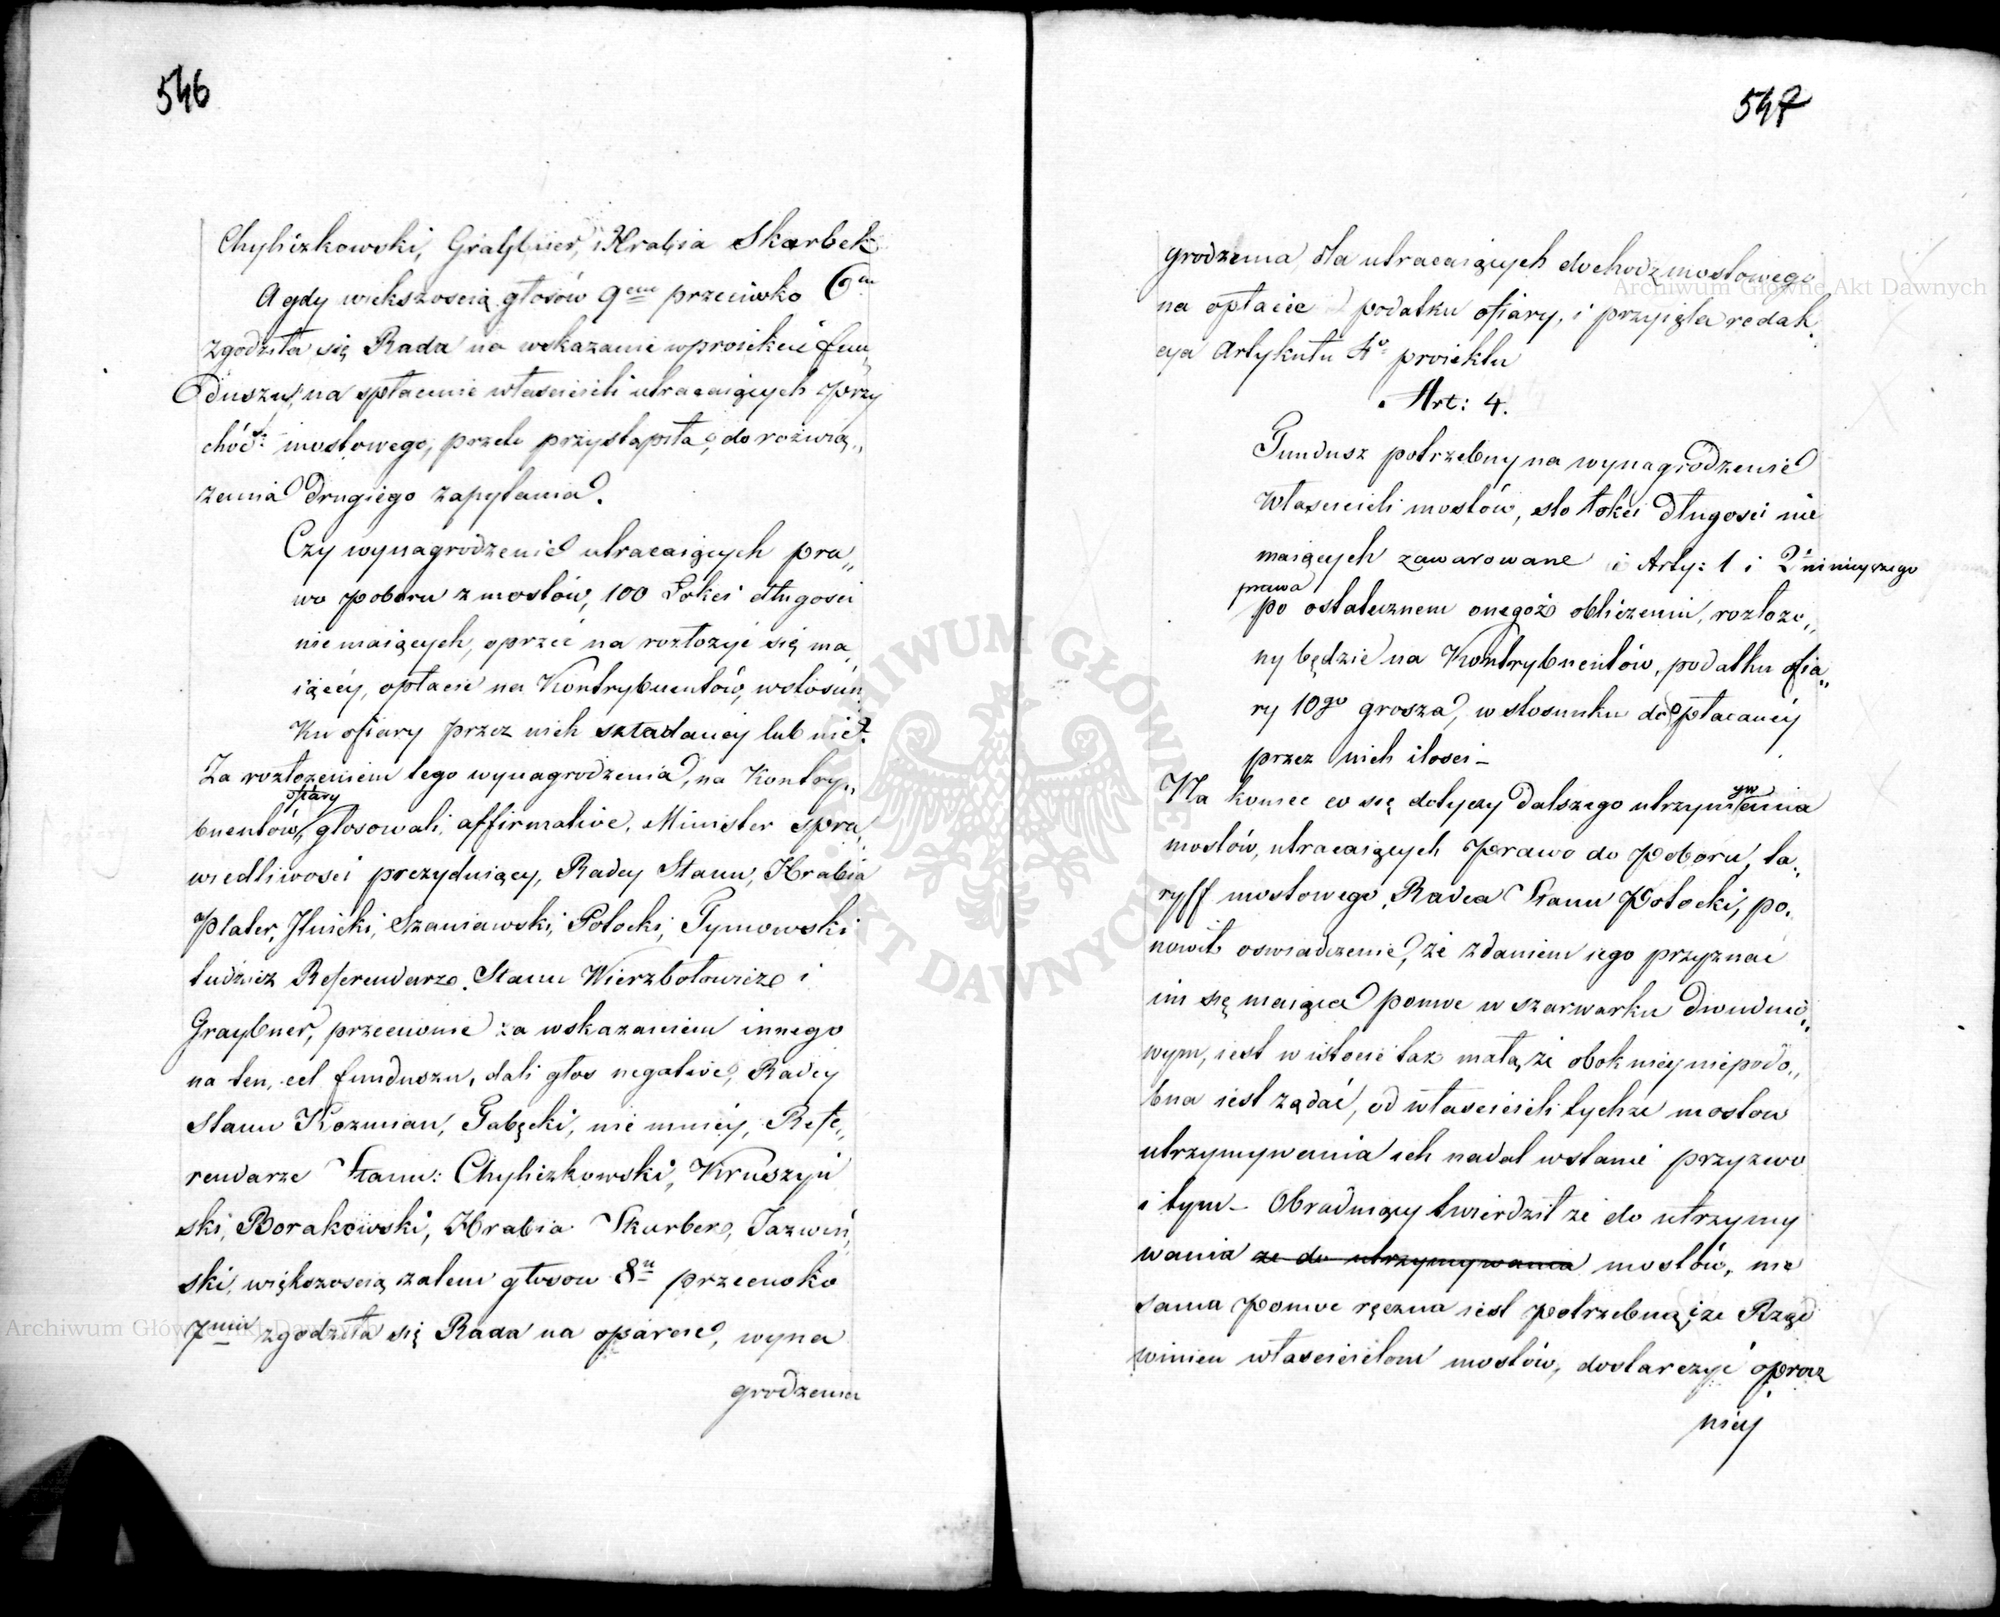 546
Chyliczkowski, Graybner, i Hrabia Skarbek
A gdy większoscią głosów 9em przeciwko 6m
zgodziła się Rada na wskazanie wproiekcie fun„
duszu, na spłacenie właścicieli utracaiących przy
chód: mostowego, przeto przystąpiła do rozwią„
zania drugiego zapytania.
Czy wynagrodzenie utracaiących pra„
wo poboru z mostów, 100 Łokci długosci
niemaiących, oprzeć na rozłożyć się ma„
iącéy, opłacie na Kontrybuentów, wstosun
ku ofiary przez nich składanéy lub nie?
Za rozłożeniem tego wynagrodzenia, na Kontry„
ofiary
buentów, głosowali, affirmative, Minister spra„
wiedliwosci prezyduiący, Radcy Stanu, Hrabia
Plater, Jłnicki, Szaniawski, Potocki, Tymowski
tudzież Referendarze Stanu Wierzbołowicz i
Graybner, przeciwnie za wskazaniem innego
na ten cel funduszu, dali głos negative, Radcy
Stanu Kozmian, Gabęcki, nie mniéy, Refe„
rendarze Stanu: Chyliczkowski, Kruszyń
ski, Borakowski, Hrabia Skarbek, Jazwiń„
ski, większoscią zatem głosow 8u przeciwko
7miu zgodziła się Rada na oparcie, wyna
grodzenia
547
grodzenia dla utracaiących dochod z mostowego
na opłacie podatku ofiary, i przyięła redak„
cya Artykułu 4o proiektu
Art: 4.
Fundusz potrzebny na wynagrodzenie
Własicieli mostów, sto łokci długosci nie
maiących zawarowane Arty: 1 i 2 ninieyszego
prawa
po ostatecznem onegoż obliczeniu, rozłożo„
ny będzie na Kontrybuentów, podatku ofia„
ry 10go grosza, w stosunku do opłacanéy
przez nich ilosci –
Na koniec co się dotyczy dalszego utrzymania
yw
mostów, utracaiących prawo do poboru, ta„
ryff mostowego, Radca Stanu Potocki, po„
nowił oswiadczenie, że zdaniem iego przyznać
im się maiąca pomoc w szarwarku dwudnio„
wym, iest w istocie tak małą, że obok niey niepodo„
bna iest żądać, od właścicieli tychże mostow
utrzymywania ich nadal wstanie przyzwo
itym – Obraduiący twierdził że do utrzymy
wania że do utrzymywania mostów, nie
sama pomoc ręczna iest potrzebną, że Rząd
winien właścicielom mostów, dostarczyć oprocz
niéy
Archiwum Główne Akt Dawnych
Archiwum Główne Akt Dawnych
ARCHIWUM GŁÓWNE AKT DAWNYCH